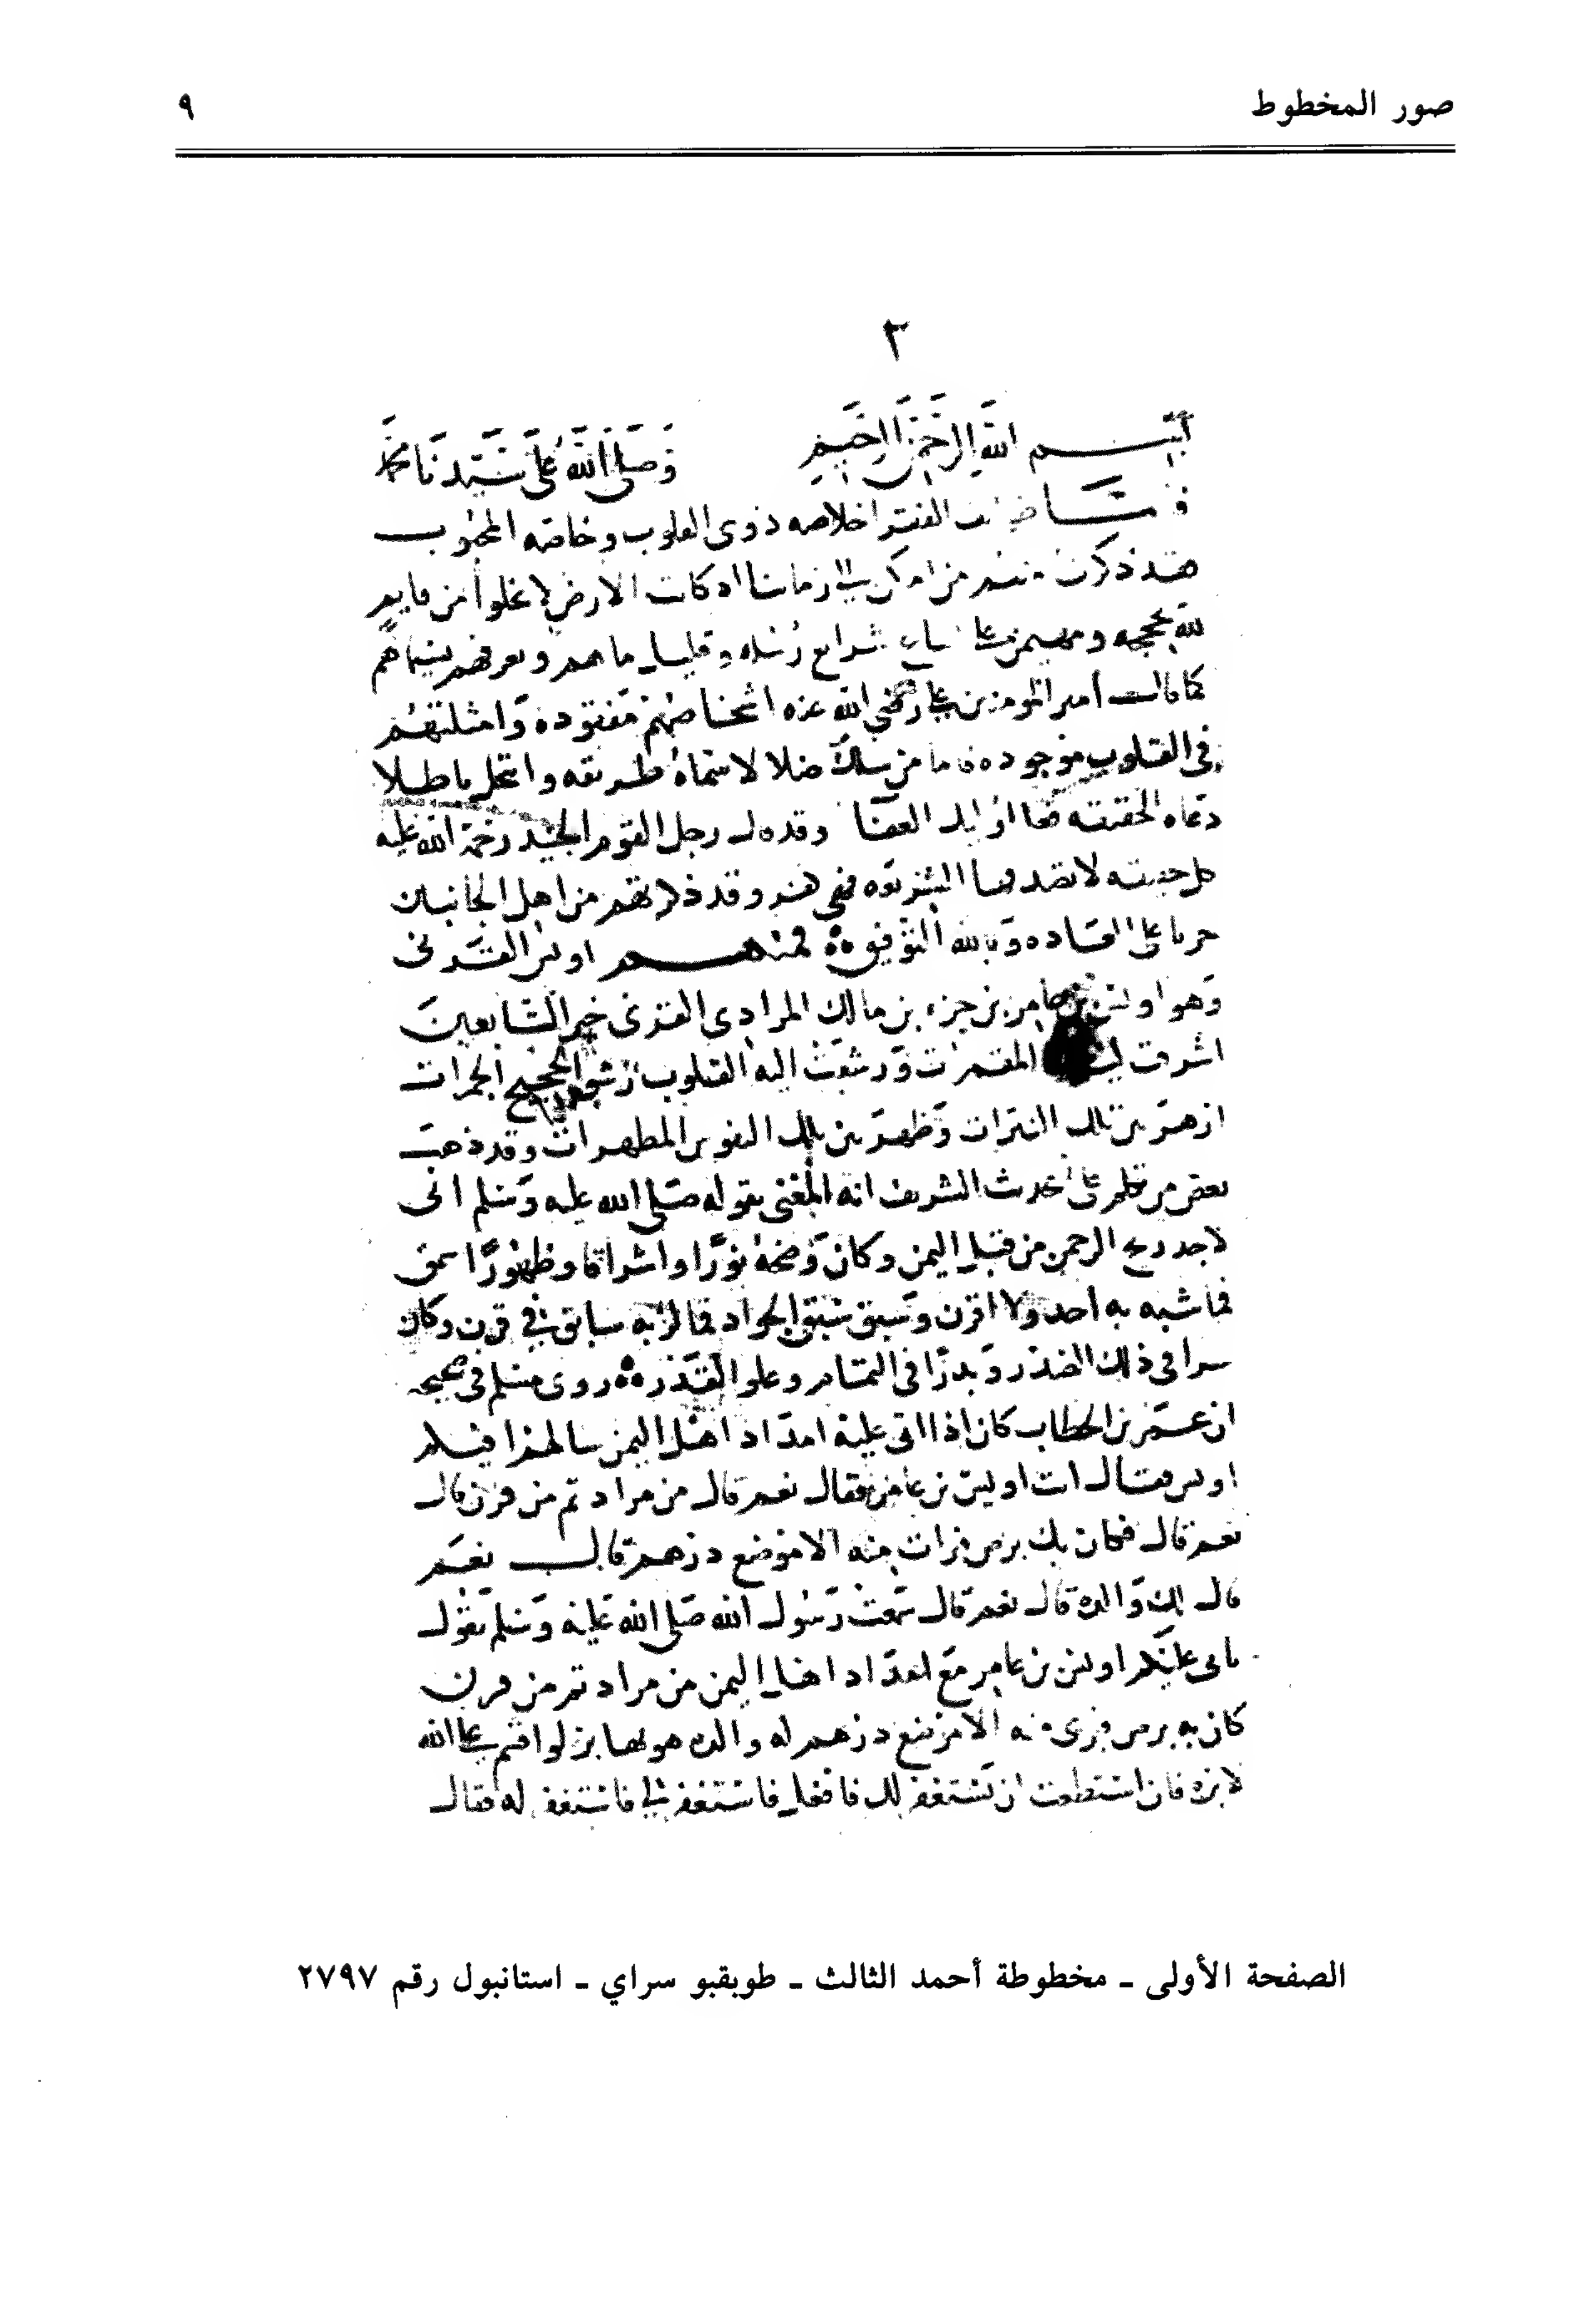 صور المخطوط
٩
٢
بسم الله الرحمن الرحيم وصلى الله على سيدنا محمد
الفقرا خلاصه ذوى القلوب وخاصه المحبوب
من لم يكن فى زماننا اذ كانت الارض لا تخلوا من قايم
لله بحجه شرايع رسله وقليل ما هم ونعرفهم بسيماهم
كما قال أمير المومنين على رضي الله عنه اشخاصهم مفقوده وامثلتهم
فى القلوب موجوده فاما من سلك ضلالا سماه طريقه وانتحل باطلا
دعاه الحقيقه وقد قال رجل القوم الجنيد رحمة الله عليه
كل حقيقه لا الشريعه فهى كفر وقد من اهل الجانبين
جريا على العاده وبالله التوفيق فمنهم اويس القرنى
وهو اويس بن عامر بن جزء بن مالك المرادى القرنى خير التابعين
اشرقت المقمرات ورشقت اليه القلوب رشق الحجيج الجمرات
ازهر من تلك النيرات وظهر من تلك النفوس المطهرات وقد ذهب
بعض من تكلم على الحديث الشريف انه المعنى بقوله صلى الله عليه وسلم انى
لاجد ريح الرحمن من قبل اليمن وكان وضحه نورا واشراقا وظهورا سمق
فما شبه به احد ولا اقرن وسبق سبق الجواد فما لز به سابق فى قرن وكان
سرا فى ذلك الصدر وبدرا فى التمام وعلو القدر روى مسلم فى صحيحه
ان عمر بن الخطاب كان اذا اتى عليه امداد اهل اليمن سالهم افيكم
اويس فقال انت اويس بن عامر فقال نعم قال من مراد ثم من قرن قال
نعم قال فكان بك برص فبرات منه الا موضع درهم قال نعم
قال لك والده قال نعم قال سمعت رسول الله صلى الله عليه وسلم يقول
ياتى عليكم اويس بن عامر مع امداد اهل اليمن من مراد ثم من قرن
كان به برص فبرى منه الا موضع درهم له والده هو بها بر لو اقسم على الله
لابره فان استطعت ان يستغفر لك فافعل فاستغفر لى فاستغفر له فقال
الصفحة الأولى ـ مخطوطة أحمد الثالث ـ طوبقبو سراي ـ استانبول رقم ٢٧٩٧